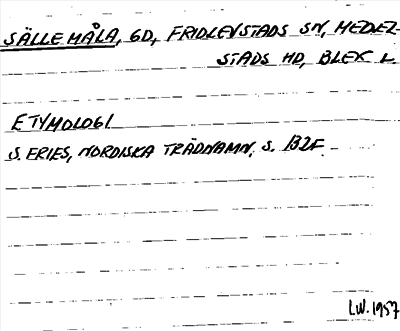 SÄLLEMÅLA, GD, FRIDLEVSTADS SN, MEDEL-
STADS HD, BLEK L.
ETYMOLOGI
S. ERIES, NORDISKA TRÄDNAMN, S. 132F.
LW. 1957